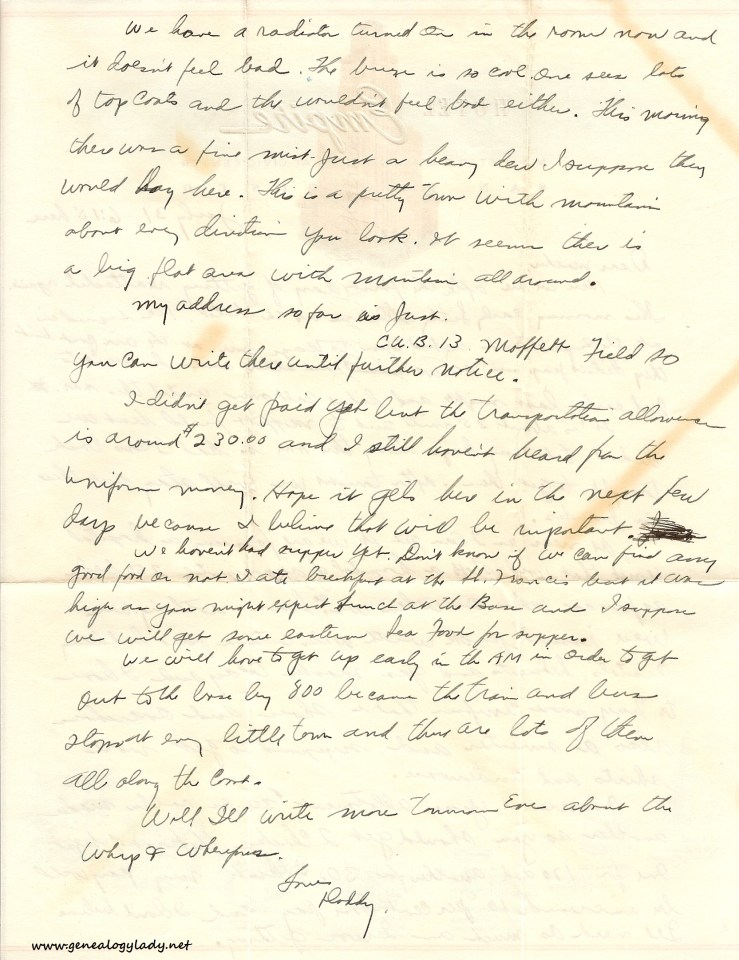 We have a radiator turned on in the room now and
it doesn't feel bad. The breeze is so cool one sees lots
of top coats and the wouldn't feel bad either. This morning
there was a fine mist. Just a heavy dew I suppose they
would say here. This is a pretty town with mountain
about every direction you look. It seems ther is
a big flat area with mountain all around.
My address so far is Just.
C.A.B. 13 Moffett Field so
you can write there until further notice.
I didn't get paid yet but the transportation allowance
is around $230.00 and I still haven't heard from the
uniform money. Hope it gets here in the next few
days because I believe that will be important.
We haven't had supper yet. Don't know if we can find any
good food or not. I ate breakfast at the St. Francis but it was
high as you might expect. Lunch at the Base and I suppose
we will get some eastern Sea Food for supper.
We will have to get up early in the AM in order to get
out to the base by 800 because the train and bus
stops at every little town and there are lots of them
all along the Coast.
Well I'll write more tomorrow Eve about the
Whys & Wherefores.
Love
Daddy.
www.genealogylady.net